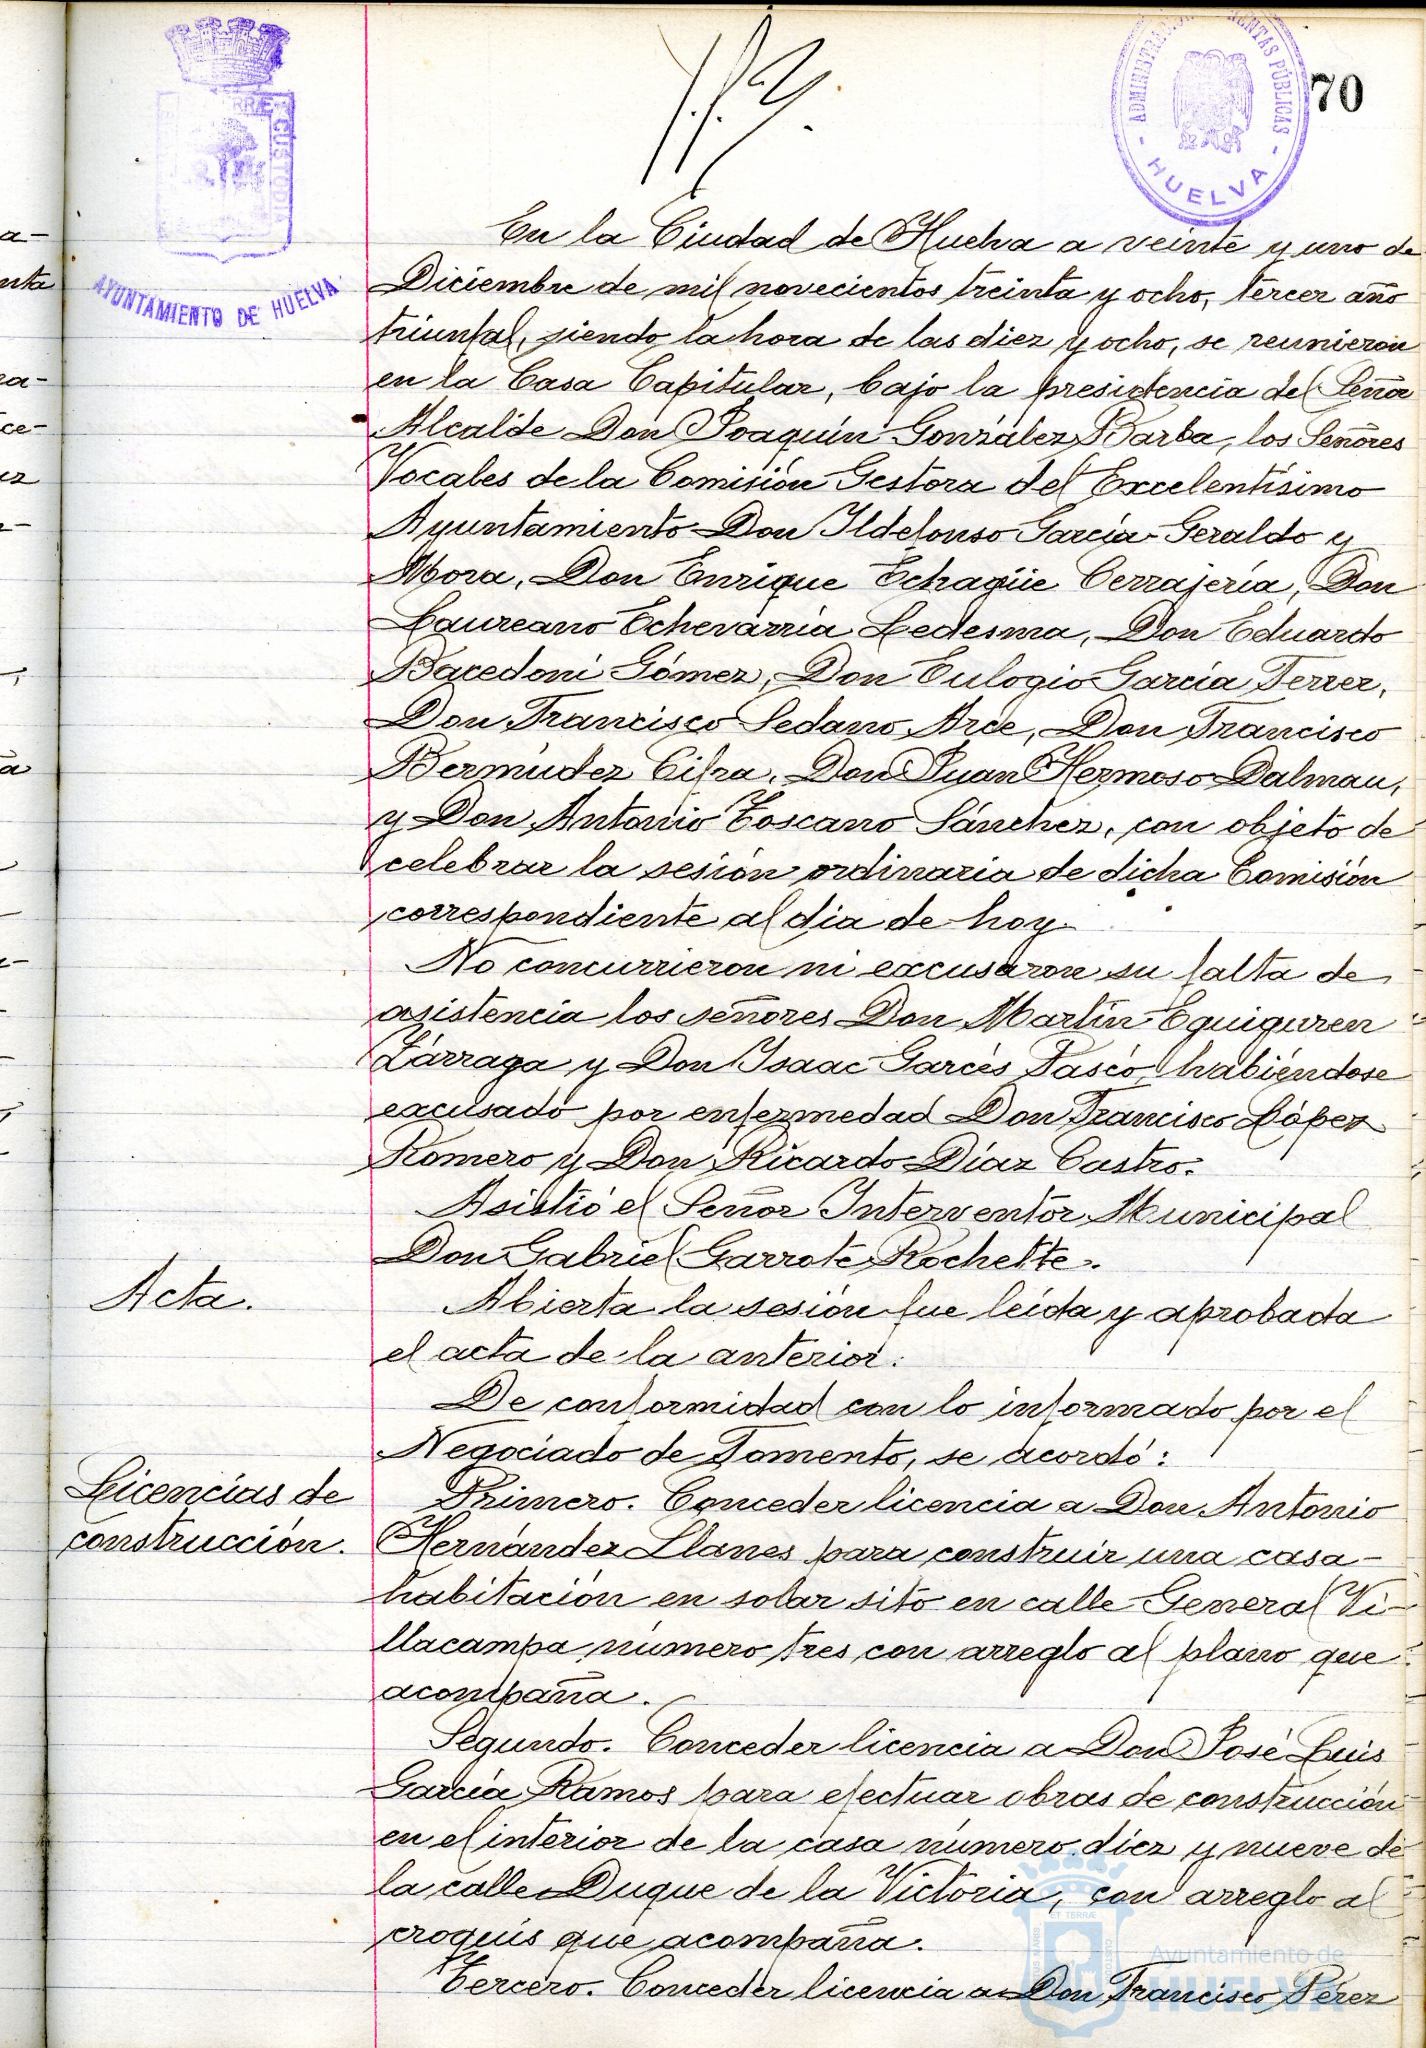 AYUNTAMIENTO DE HUELVA
ADMINISTRACIÓN RENTAS PÚBLICAS
- HUELVA -
70
En la Ciudad de Huelva a veinte y uno de
Diciembre de mil novecientos treinta y ocho, tercer año
triunfal, siendo la hora de las diez y ocho, se reunieron
en la Casa Capitular, bajo la presidencia del Señor
Alcalde Don Joaquín González Barba, los Señores
Vocales de la Comisión Gestora del Excelentísimo
Ayuntamiento Don Ildefonso García-Geraldo y
Mora, Don Enrique Echagüie Cerrajería, Don
Laureano Echevarría Ledesma, Don Eduardo
Bacedoni Gómez, Don Eulogio García Ferrer,
Don Francisco Sedano Arce, Don Francisco
Bermúdez Cifra, Don Juan Hermoso Dalmau,
y Don Antonio Toscano Sánchez, con objeto de
celebrar la sesión ordinaria de dicha Comisión
correspondiente al día de hoy.
No concurrieron ni excusaron su falta de
asistencia los señores Don Martín Eguiguren
Zárraga y Don Isaac Garcés Pascó, habiéndose
excusado por enfermedad Don Francisco López
Romero y Don Ricardo Díaz Castro.
Asistió el Señor Interventor Municipal
Don Gabriel Garrote Rochette.
Acta.
Abierta la sesión fue leída y aprobada
el acta de la anterior.
De conformidad con lo informado por el
Negociado de Fomento, se acordó:
Licencias de
construcción.
Primero. Conceder licencia a Don Antonio
Hernández Llanes para construir una casa-
habitación en solar sito en calle General Vi-
llacampa número tres con arreglo al plano que
acompaña.
Segundo. Conceder licencia a Don José Luis
García Ramos para efectuar obras de construcción
en el interior de la casa número diez y nueve de
la calle Duque de la Victoria, con arreglo al
croquis que acompaña.
Tercero. Conceder licencia a Don Francisco Pérez
Ayuntamiento de
HUELVA